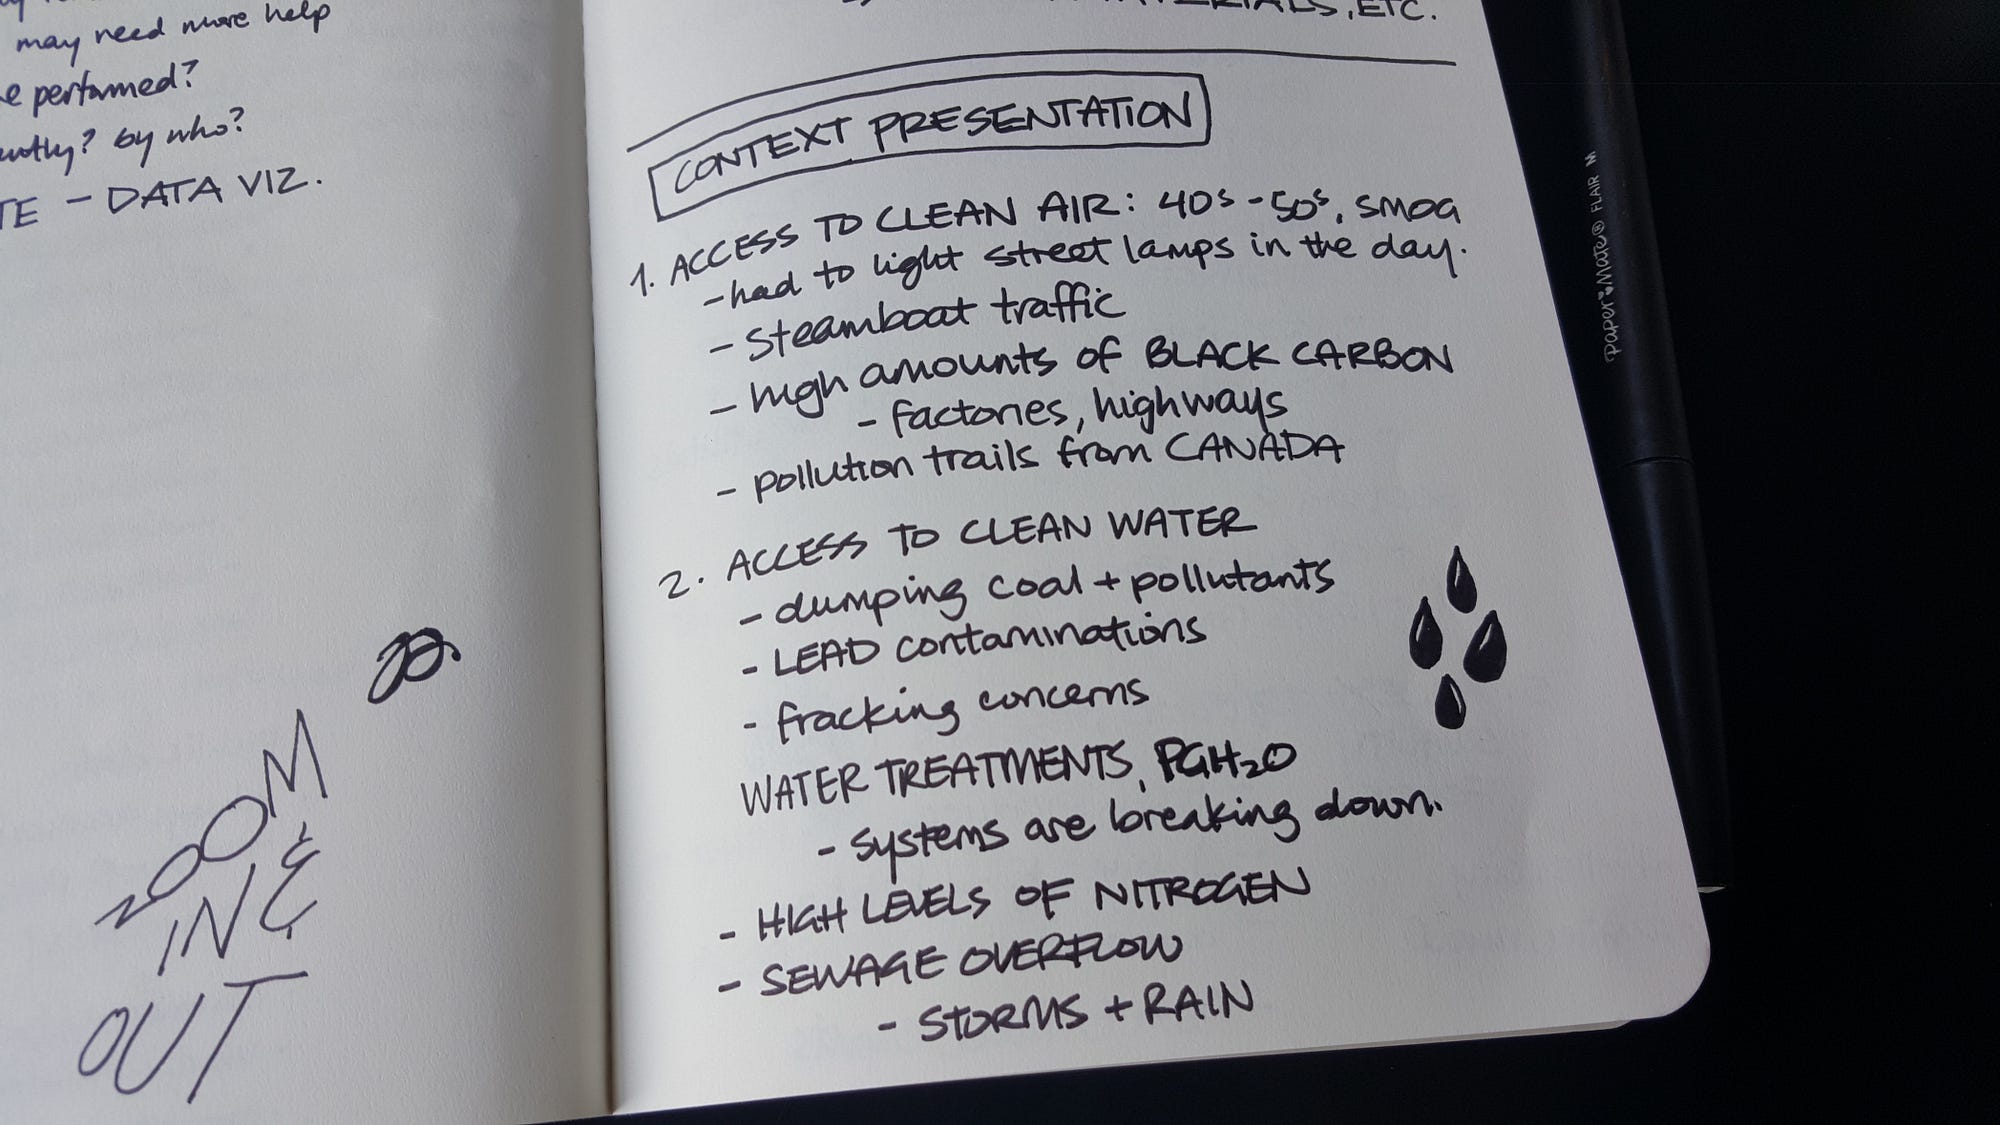 may need more help
performed?
? by who?
- DATA VIZ.
ZOOM
IN &
OUT
, ETC.
CONTEXT PRESENTATION
1. ACCESS TO CLEAN AIR: 40s-50s, SMOG
- had to light street lamps in the day.
- steamboat traffic
- high amounts of BLACK CARBON
- factories, highways
- pollution trails from CANADA
2. ACCESS TO CLEAN WATER
- dumping coal + pollutants
- LEAD contaminations
- fracking concerns
WATER TREATMENTS, PGH₂O
- systems are breaking down.
- HIGH LEVELS OF NITROGEN
- SEWAGE OVERFLOW
- STORMS + RAIN
Paper Mate® FLAIR M